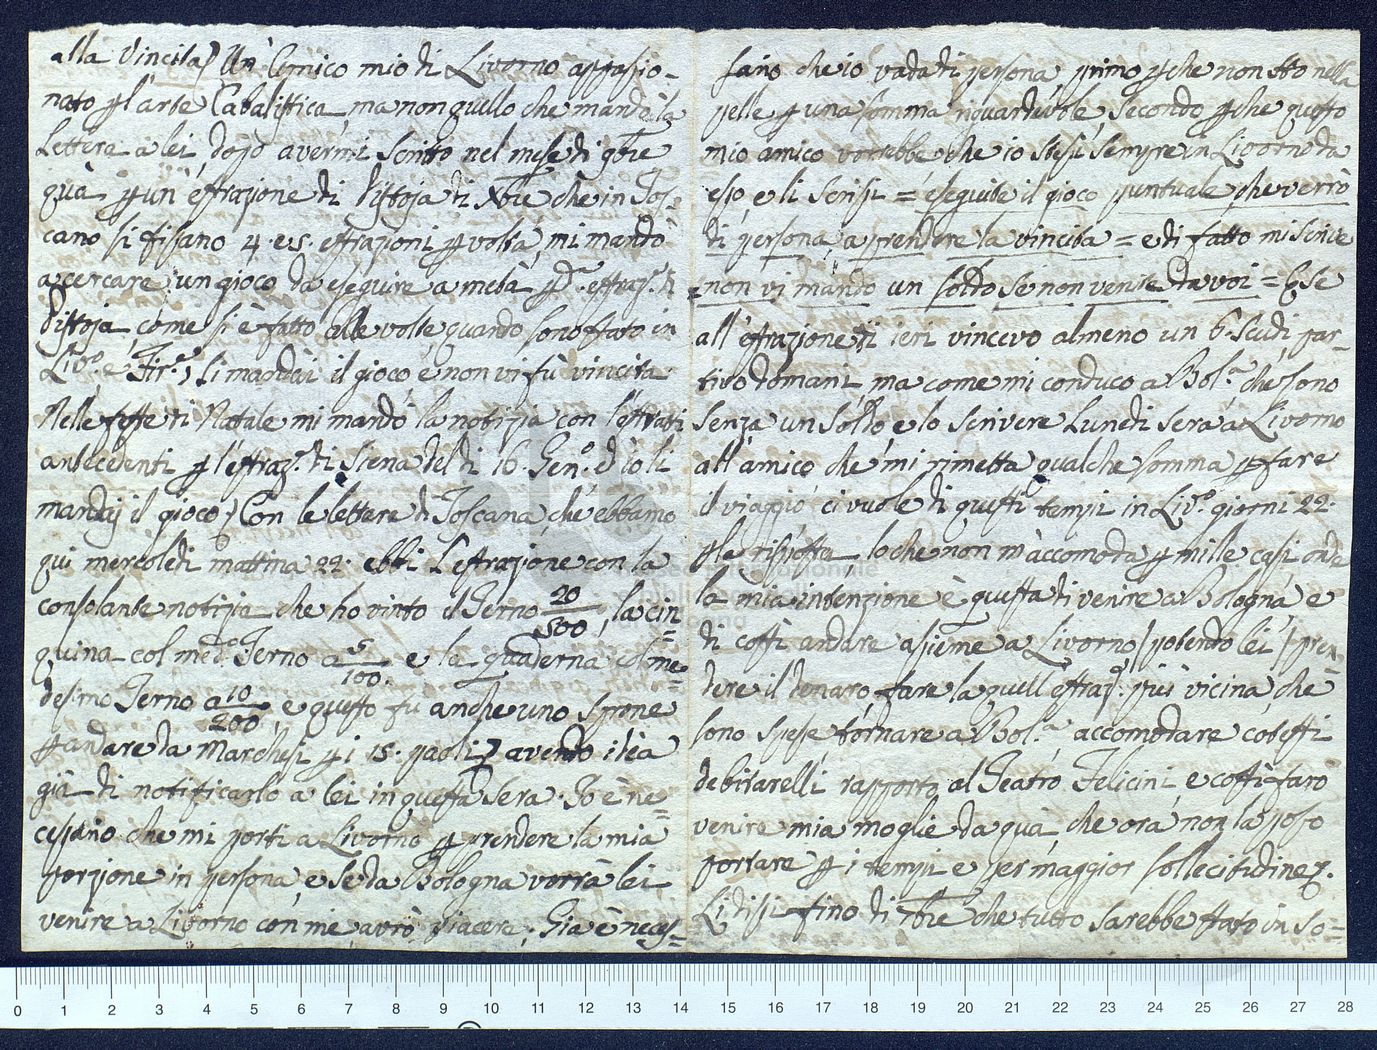 alla Vincita) Un' Amico mio di Livorno appassio-
nato p l'arte Cabalistica, ma non quello che mandò la
Lettera a lei, dopo avermi scritto nel mese di 9bre
quà p un' estrazione di Pistoja di Xbre chè in Tos-
cano si fissano 4. e 5. estrazioni p volta, mi mandò
a cercare un gioco da eseguire a metà p d.a estraz.e di
Pistoja, come si è fatto alle volte quando sono stato in
Liv.o e Fir.e, li mandai il gioco, e non vi fù vincita
Nelle feste di Natale mi mandò la notizia con l'estratti
antecedenti p l'estraz.e di Siena del dì 16. Gen.o ed io li
mandaj il gioco) Con le lettere di Toscana, che ebbamo
qui mercoledì mattina 22. ebbi L'estrazione con la
consolante notizia che ho vinto il Terno 20/500, la cin=
quina col med.o Terno a 5/100. e la quaderna il me=
desimo Terno a 10/200, e questo fu anche uno sprone
p andare da Marchesi p i 15. paoli) avendo idèa
già di notificarlo a lei in questa sera. Io è ne=
cessario che mi porti a Livorno p prendere la mia
porzione in persona, e se da Bologna vorrà lei
venire a Livorno con me, avrò piacere. Già è neces=
sario che io vada di persona, primo p che non sto nella
pelle p una somma riguardevole, secondo p che questo
mio amico vorrebbe che io stessi sempre in Livorno da
esso, e li scrissi = eseguite il gioco puntuale che verrò
di persona a prendere la vincita = e di fatto mi scrive
= non vi mando un soldo se non venite da voi = E se
all' estrazione di ieri vincevo almeno un 6. scudi par-
tivo domani, ma come mi conduco a Bol.a che sono
senza un soldo e lo scrivere Lunedì sera a Livorno
all' amico che mi rimetta qualche somma p fare
il viaggio, ci vuole di questi tempi in Liv.o giorni 22.
p le risposta, lo che non m' accomoda p mille casi onde
la mia intenzione è questa di venire a Bologna e
di costì andare assieme a Livorno (potendo lei) pren=
dere il denaro, fare la quell' estraz.e più vicina che
sono spese tornare a Bol.a accomodare cotesti
debitarelli rapporto al Teatro Felicini, e costì farò
venire mia moglie da quà, che ora non la posso
portare p i tempi e per maggior sollecitudine).
Li dissi fino di 7bre che tutto sarebbe stato in so=